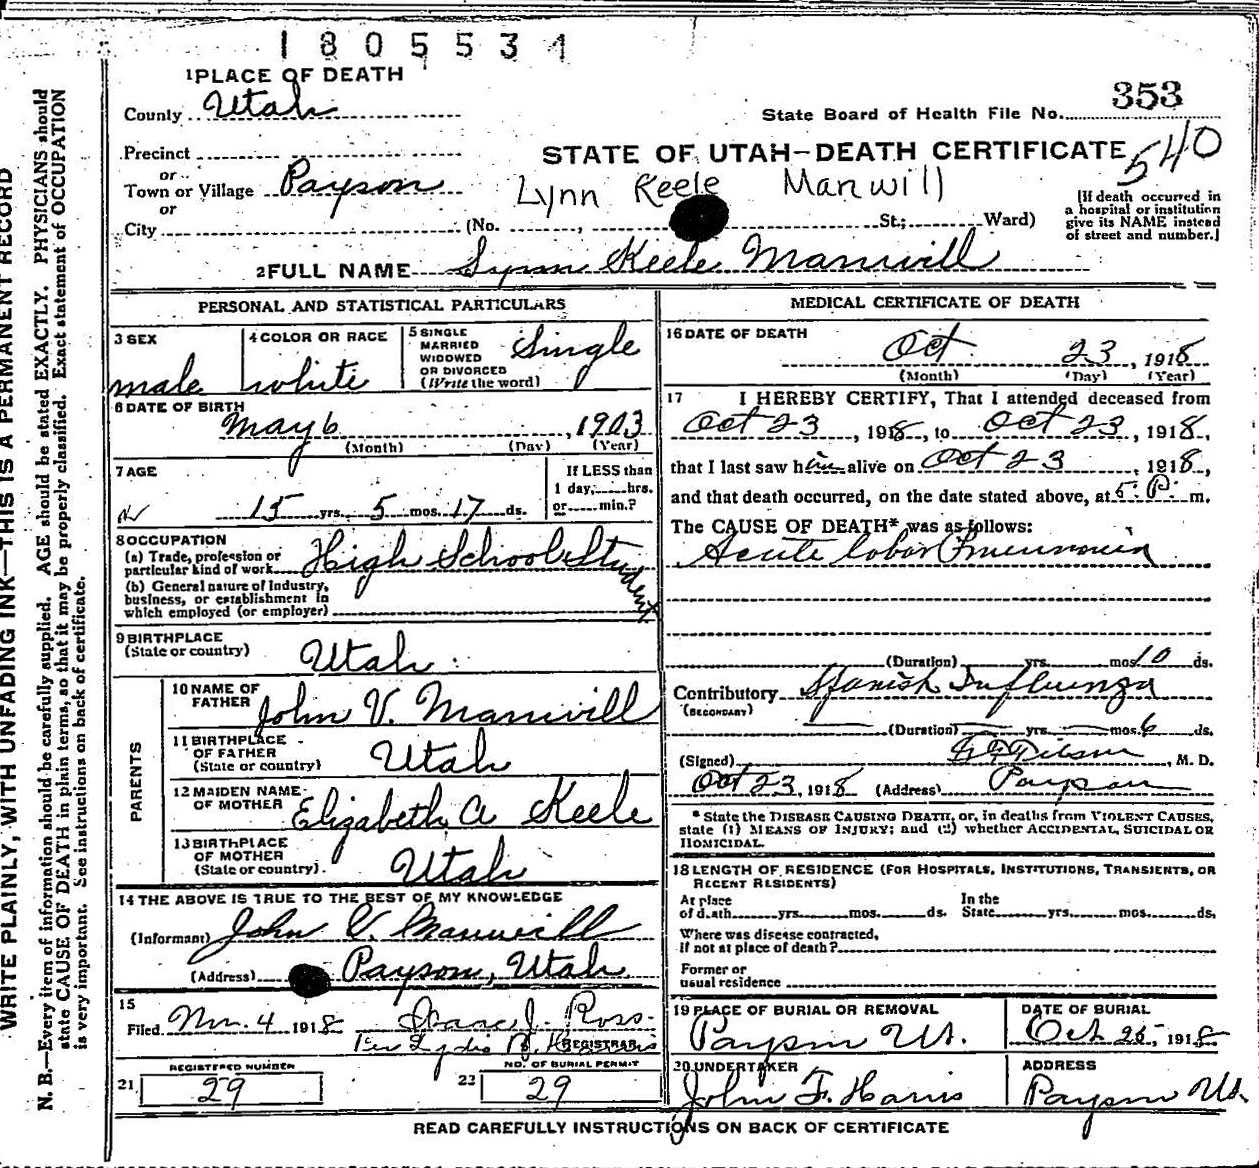 1805534
1 PLACE OF DEATH
County Utah
State Board of Health File No. 353
Precinct
or
STATE OF UTAH—DEATH CERTIFICATE 540
Town or Village Payson
Lynn Keele Manwill
or
City (No. , St.; Ward)
[If death occurred in
a hospital or institution
give its NAME instead
of street and number.]
2 FULL NAME Lynn Keele Manwill
PERSONAL AND STATISTICAL PARTICULARS
3 SEX
male
4 COLOR OR RACE
white
5 SINGLE
MARRIED
WIDOWED
OR DIVORCED
(Write the word)
Single
6 DATE OF BIRTH
May 6, 1903
(Month) (Day) (Year)
7 AGE
15 yrs. 5 mos. 17 ds.
If LESS than
1 day, hrs.
or min.?
8 OCCUPATION
(a) Trade, profession or
particular kind of work High School Student
(b) General nature of industry,
business, or establishment in
which employed (or employer)
9 BIRTHPLACE
(State or country) Utah
PARENTS
10 NAME OF
FATHER John V. Manwill
11 BIRTHPLACE
OF FATHER
(State or country) Utah
12 MAIDEN NAME
OF MOTHER Elizabeth A Keele
13 BIRTHPLACE
OF MOTHER
(State or country) Utah
14 THE ABOVE IS TRUE TO THE BEST OF MY KNOWLEDGE
(Informant) John V. Manwill
(Address) Payson, Utah
15
Filed Nov. 4 1918 Isaac J. Ross
Per Lydia
REGISTRAR
REGISTERED NUMBER
21 29
NO. OF BURIAL PERMIT
22 29
MEDICAL CERTIFICATE OF DEATH
16 DATE OF DEATH
Oct 23, 1918
(Month) (Day) (Year)
17 I HEREBY CERTIFY, That I attended deceased from
Oct 23, 1918, to Oct 23, 1918,
that I last saw him alive on Oct 23, 1918,
and that death occurred, on the date stated above, at 5 P. m.
The CAUSE OF DEATH* was as follows:
Acute lobar Pneumonia
(Duration) yrs. mos. 10 ds.
Contributory Spanish Influenza
(SECONDARY)
(Duration) yrs. mos. 6 ds.
(Signed) , M. D.
Oct 23, 1918 (Address) Payson
* State the DISEASE CAUSING DEATH, or, in deaths from VIOLENT CAUSES,
state (1) MEANS OF INJURY; and (2) whether ACCIDENTAL, SUICIDAL OR
HOMICIDAL.
18 LENGTH OF RESIDENCE (FOR HOSPITALS, INSTITUTIONS, TRANSIENTS, OR
RECENT RESIDENTS)
At place
of death yrs. mos. ds.
In the
State yrs. mos. ds.
Where was disease contracted,
if not at place of death?
Former or
usual residence
19 PLACE OF BURIAL OR REMOVAL
Payson Ut.
DATE OF BURIAL
Oct 25, 1918
20 UNDERTAKER
John F. Haris
ADDRESS
Payson Ut.
READ CAREFULLY INSTRUCTIONS ON BACK OF CERTIFICATE
WRITE PLAINLY, WITH UNFADING INK—THIS IS A PERMANENT RECORD
N. B.—Every item of information should be carefully supplied. AGE should be stated EXACTLY. PHYSICIANS should
state CAUSE OF DEATH in plain terms, so that it may be properly classified. Exact statement of OCCUPATION
is very important. See instructions on back of certificate.